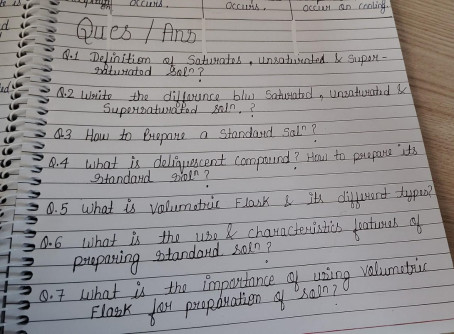 occurs.
occurs.
occur on cooling.
Ques / Ans
Q.1 Definition of Saturates, unsaturated & Super-
saturated Soln?
Q.2 Write the difference b/w Saturated, Unsaturated &
Supersaturated soln. ?
Q.3 How to Prepare a Standard Soln?
Q.4 What is deliquescent compound? How to prepare its
standard soln?
Q.5 What is Volumetric Flask & its different types?
Q.6 What is the use & characteristics features of
preparing standard soln?
Q.7 What is the importance of using volumetric
Flask for preparation of soln?